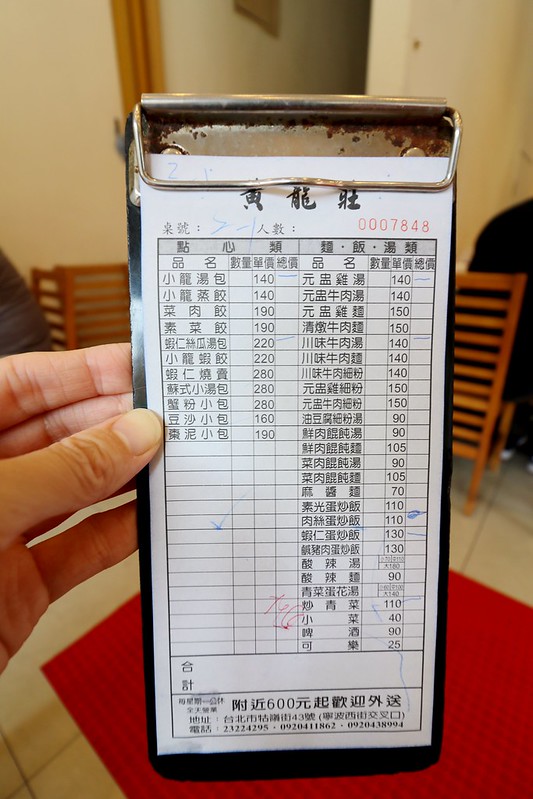 黃龍莊
桌號： 人數： 0007848
點心類 麵·飯·湯類
品名 數量 單價 總價 品名 數量 單價 總價
小龍湯包 140 元盅雞湯 140
小龍蒸餃 140 元盅牛肉湯 140
菜肉餃 190 元盅雞麵 150
素菜餃 190 清燉牛肉麵 150
蝦仁絲瓜湯包 220 川味牛肉湯 140
小龍蝦餃 220 川味牛肉麵 150
蝦仁燒賣 280 川味牛肉細粉 150
蘇式小湯包 280 元盅雞細粉 150
蟹粉小包 280 元盅牛肉細粉 150
豆沙小包 160 油豆腐細粉湯 90
棗泥小包 190 鮮肉餛飩湯 90
鮮肉餛飩麵 105
菜肉餛飩湯 90
菜肉餛飩麵 105
麻醬麵 70
素光蛋炒飯 110
肉絲蛋炒飯 110
蝦仁蛋炒飯 130
鹹豬肉蛋炒飯 130
酸辣湯 大180
酸辣麵 90
青菜蛋花湯 大140
炒青菜 110
小菜 40
啤酒 90
可樂 25
合計
每星期一公休
全天營業
附近600元起歡迎外送
地址：台北市牯嶺街43號(寧波西街交叉口)
電話：23224295·0920411862·0920438994